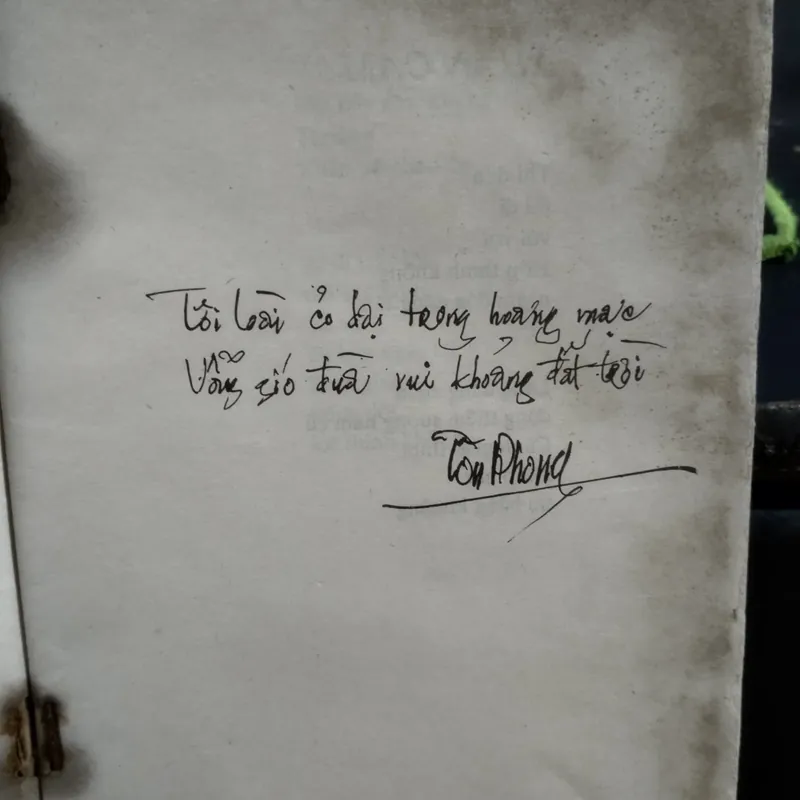 Tôi loài cỏ dại trong hoang mạc
Vẫn gió đùa vui khoảng đất trời
Tôn Phong